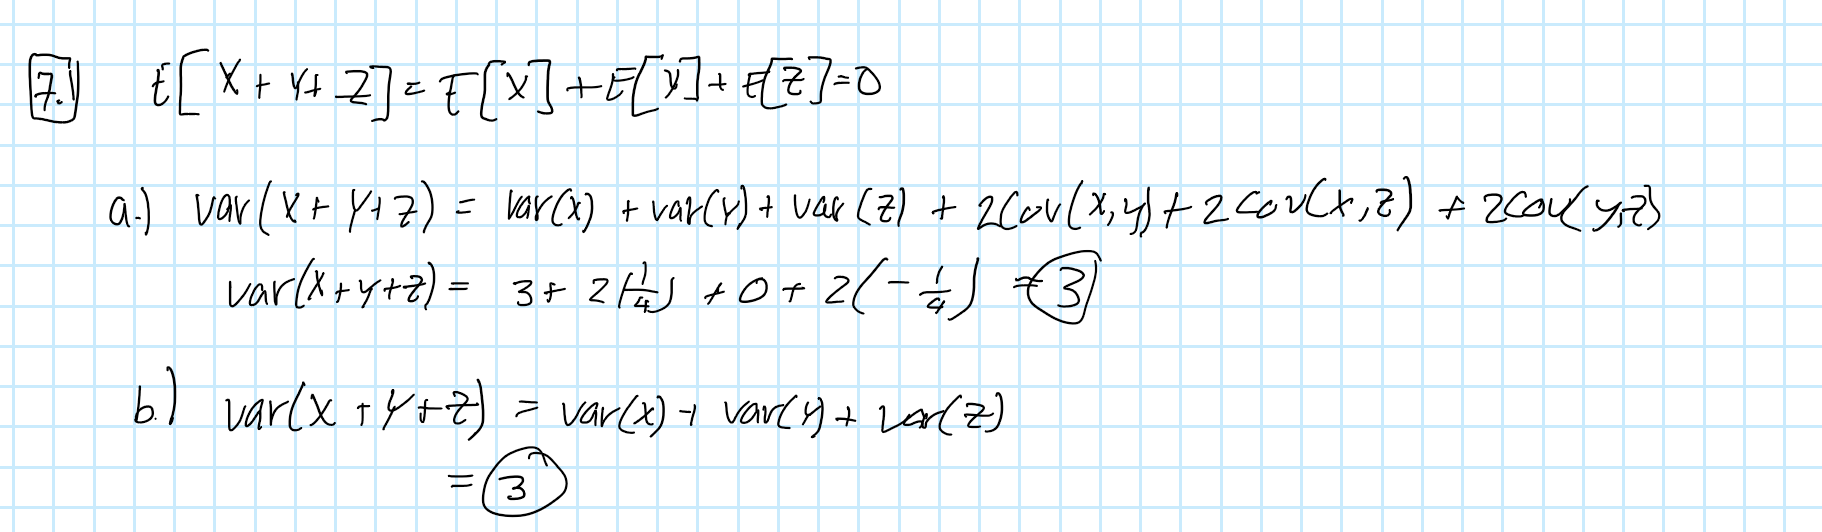 7.1 E[X + Y + Z] = E[X] + E[Y] + E[Z] = 0
a.) var(X + Y + Z) = var(X) + var(Y) + var(Z) + 2Cov(X,Y) + 2Cov(X,Z) + 2Cov(Y,Z)
var(X + Y + Z) = 3 + 2(1/4) + 0 + 2(-1/4) = 3
b.) var(X + Y + Z) = var(X) + var(Y) + var(Z)
= 3